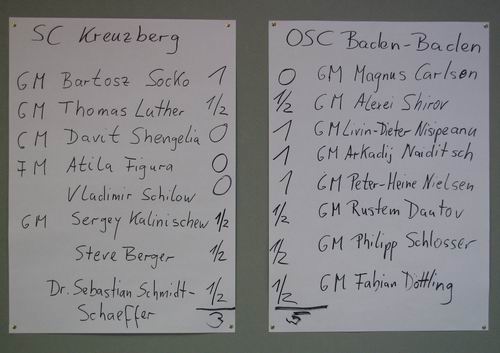 SC Kreuzberg
GM Bartosz Socko 1
GM Thomas Luther 1/2
GM Davit Shengelia 0
FM Atila Figura 0
Vladimir Schilow 0
GM Sergey Kalinischew 1/2
Steve Berger 1/2
Dr. Sebastian Schmidt- 1/2
Schaeffer 3
OSC Baden-Baden
0 GM Magnus Carlsen
1/2 GM Alexei Shirov
1 GM Livin-Dieter Nisipeanu
1 GM Arkadij Naiditsch
1 GM Peter-Heine Nielsen
1/2 GM Rustem Dautov
1/2 GM Philipp Schlosser
1/2 GM Fabian Döttling
5